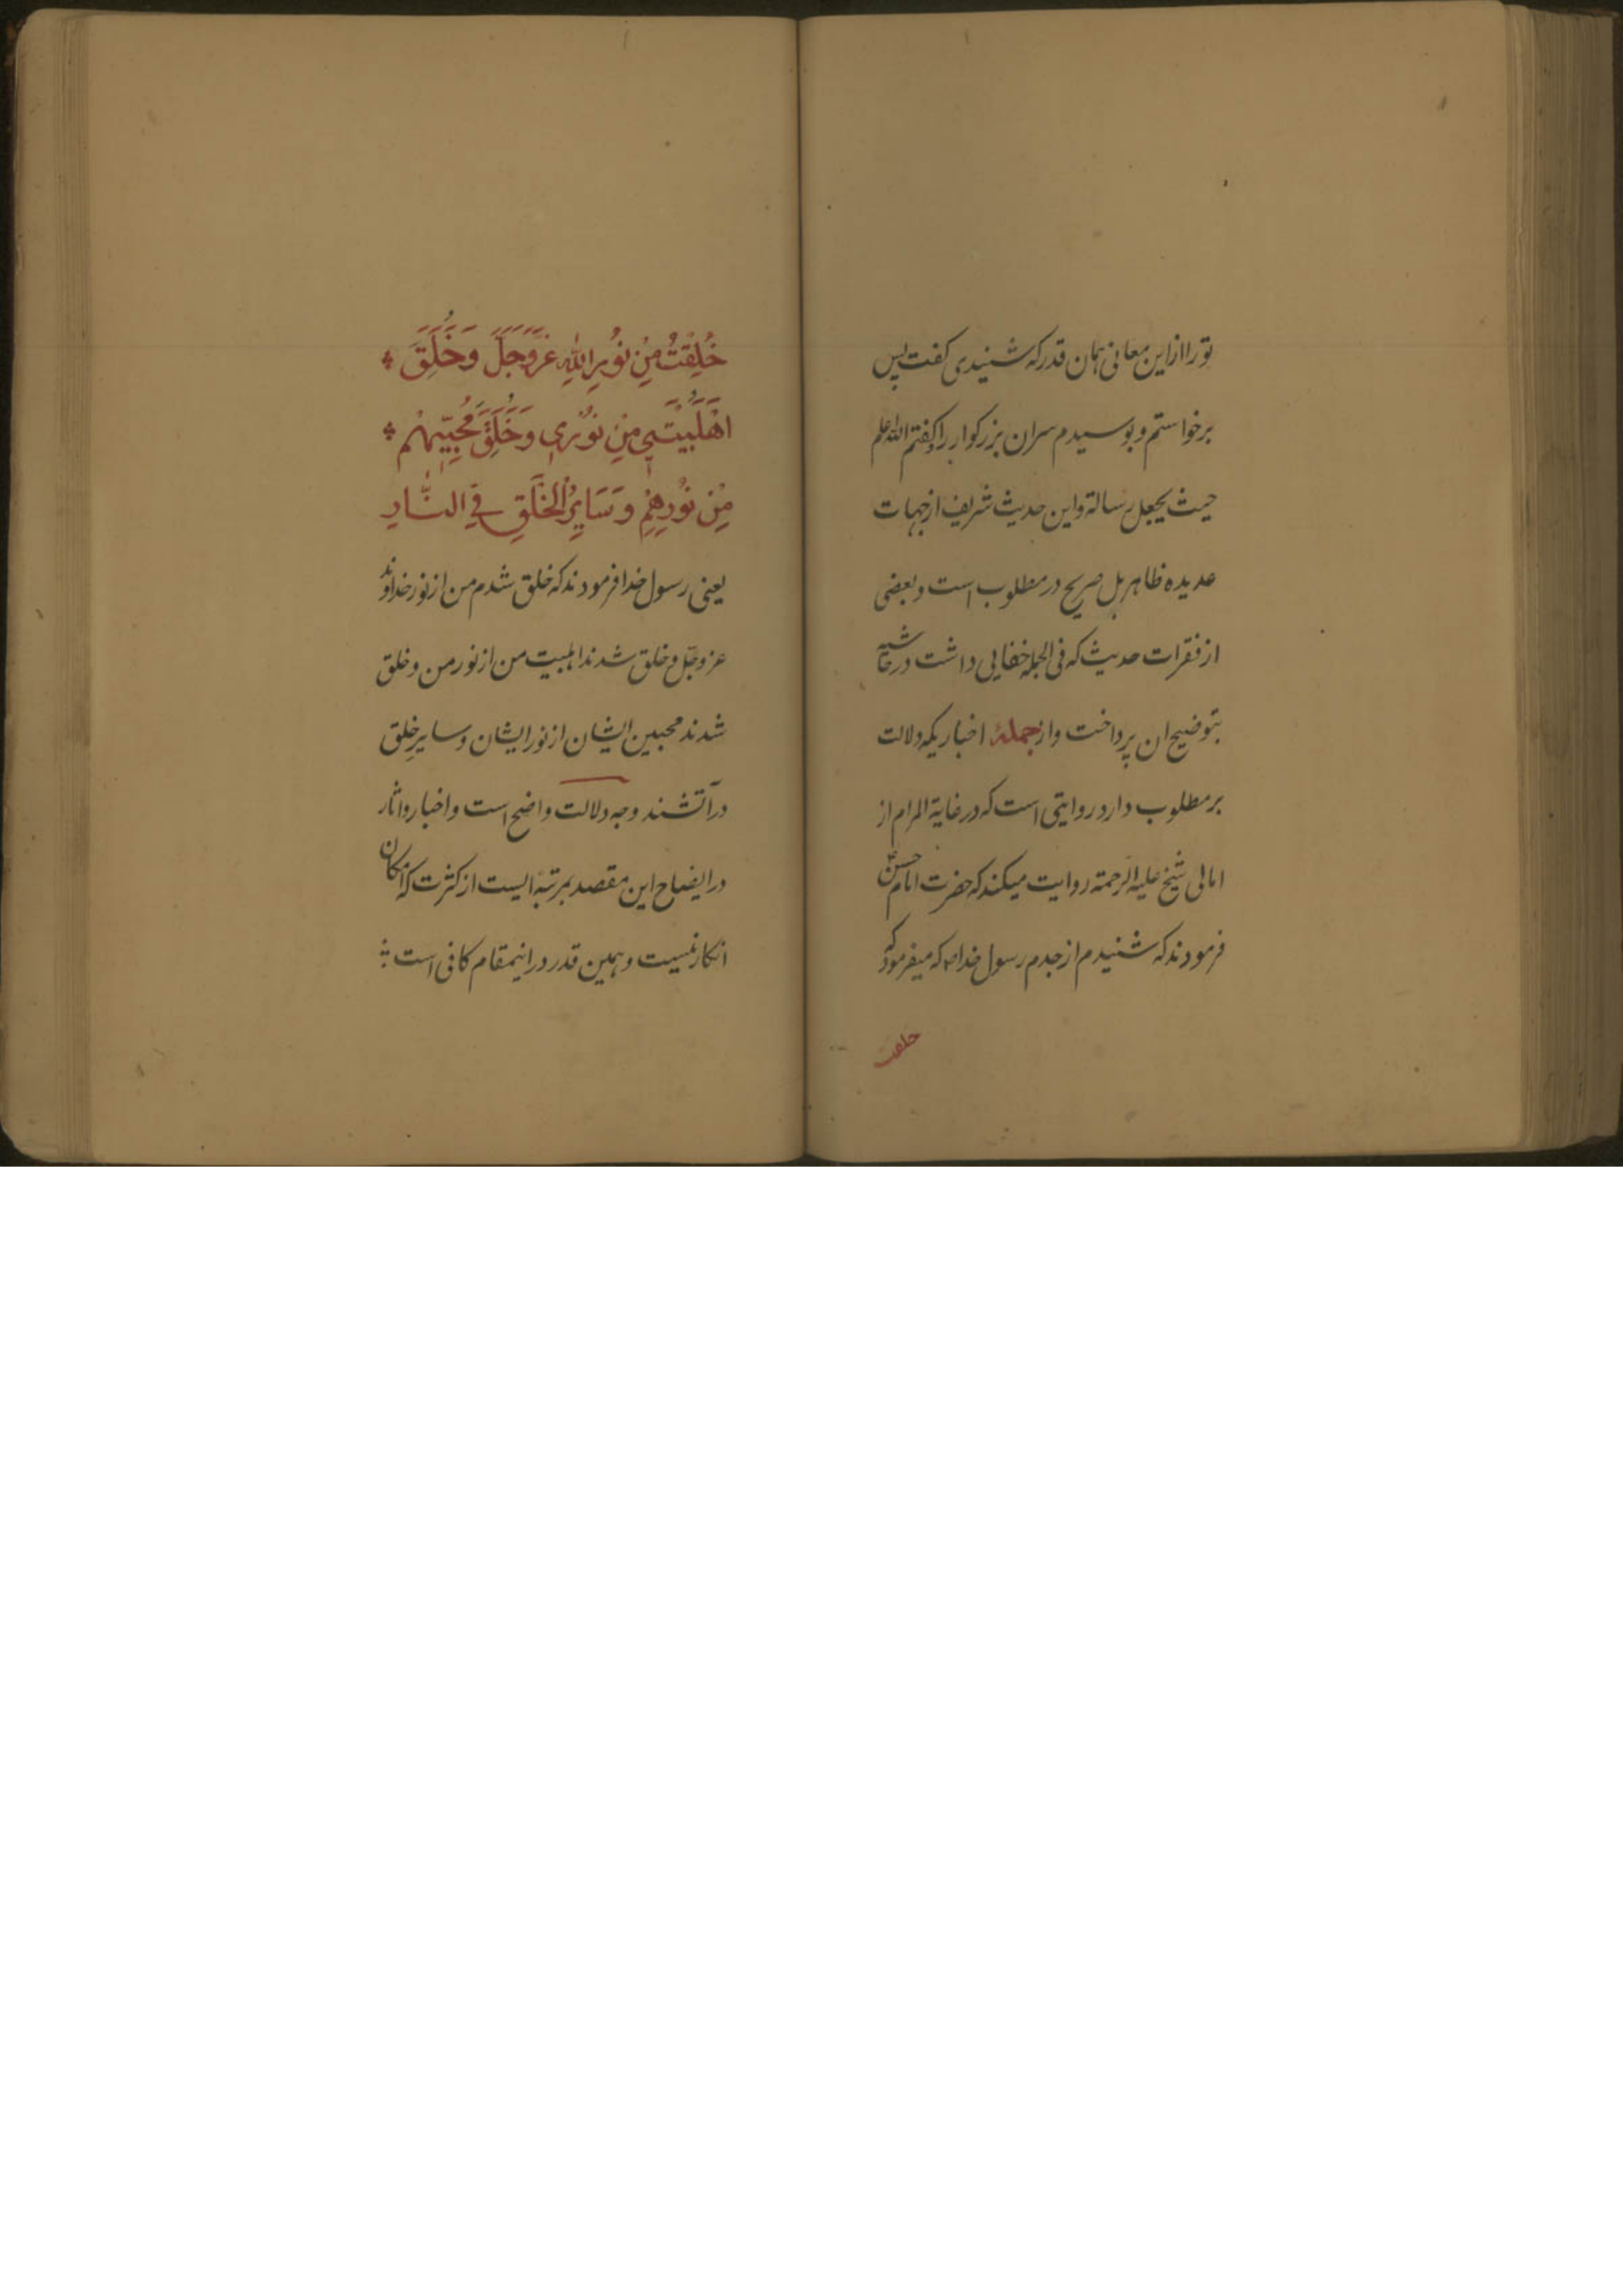 تو را از این معانی همان قدر که شنیدی کفت پس
برخواستم و بوسیدم سر ان بزرکوار را و کفتم الله اعلم
حیث یجعل رسالته و این حدیث شریف از جهات
عدیده ظاهر بل صریح در مطلوب است و بعضی
از فقرات حدیث که فی الجمله خفایی داشت در حاشیه
بتوضیح ان پرداخت و از جملهٔ اخباریکه دلالت
بر مطلوب دارد روایتی است که در غایة المرام از
امالی شیخ علیه الرحمة روایت میکند که حضرت امام حسن ع
فرمودند که شنیدم از جدم رسول خدا ص که میفرمود که
خلقت
خُلِقْتُ مِنْ نُورِ اللهِ عَزَّ وَجَلَّ وَخُلِقَ
اَهْلُبَيْتِي مِنْ نُوْرِي وَخُلِقَ مُحِبِّيْهِمْ
مِنْ نُورِهِمْ وَسَايِرُ الْخَلْقِ فِي النَّارِ
یعنی رسول خدا فرمودند که خلق شدم من از نور خداوند
عز وجلّ و خلق شدند اهلبیت من از نور من و خلق
شدند محبین ایشان از نور ایشان و سایر خلق
در آتشند وجه دلالت واضح است و اخبار و اثار
در ایضاح این مقصد بمرتبهٔ ایست از کثرت که امکان
انکار نیست و همین قدر در اینمقام کافی است